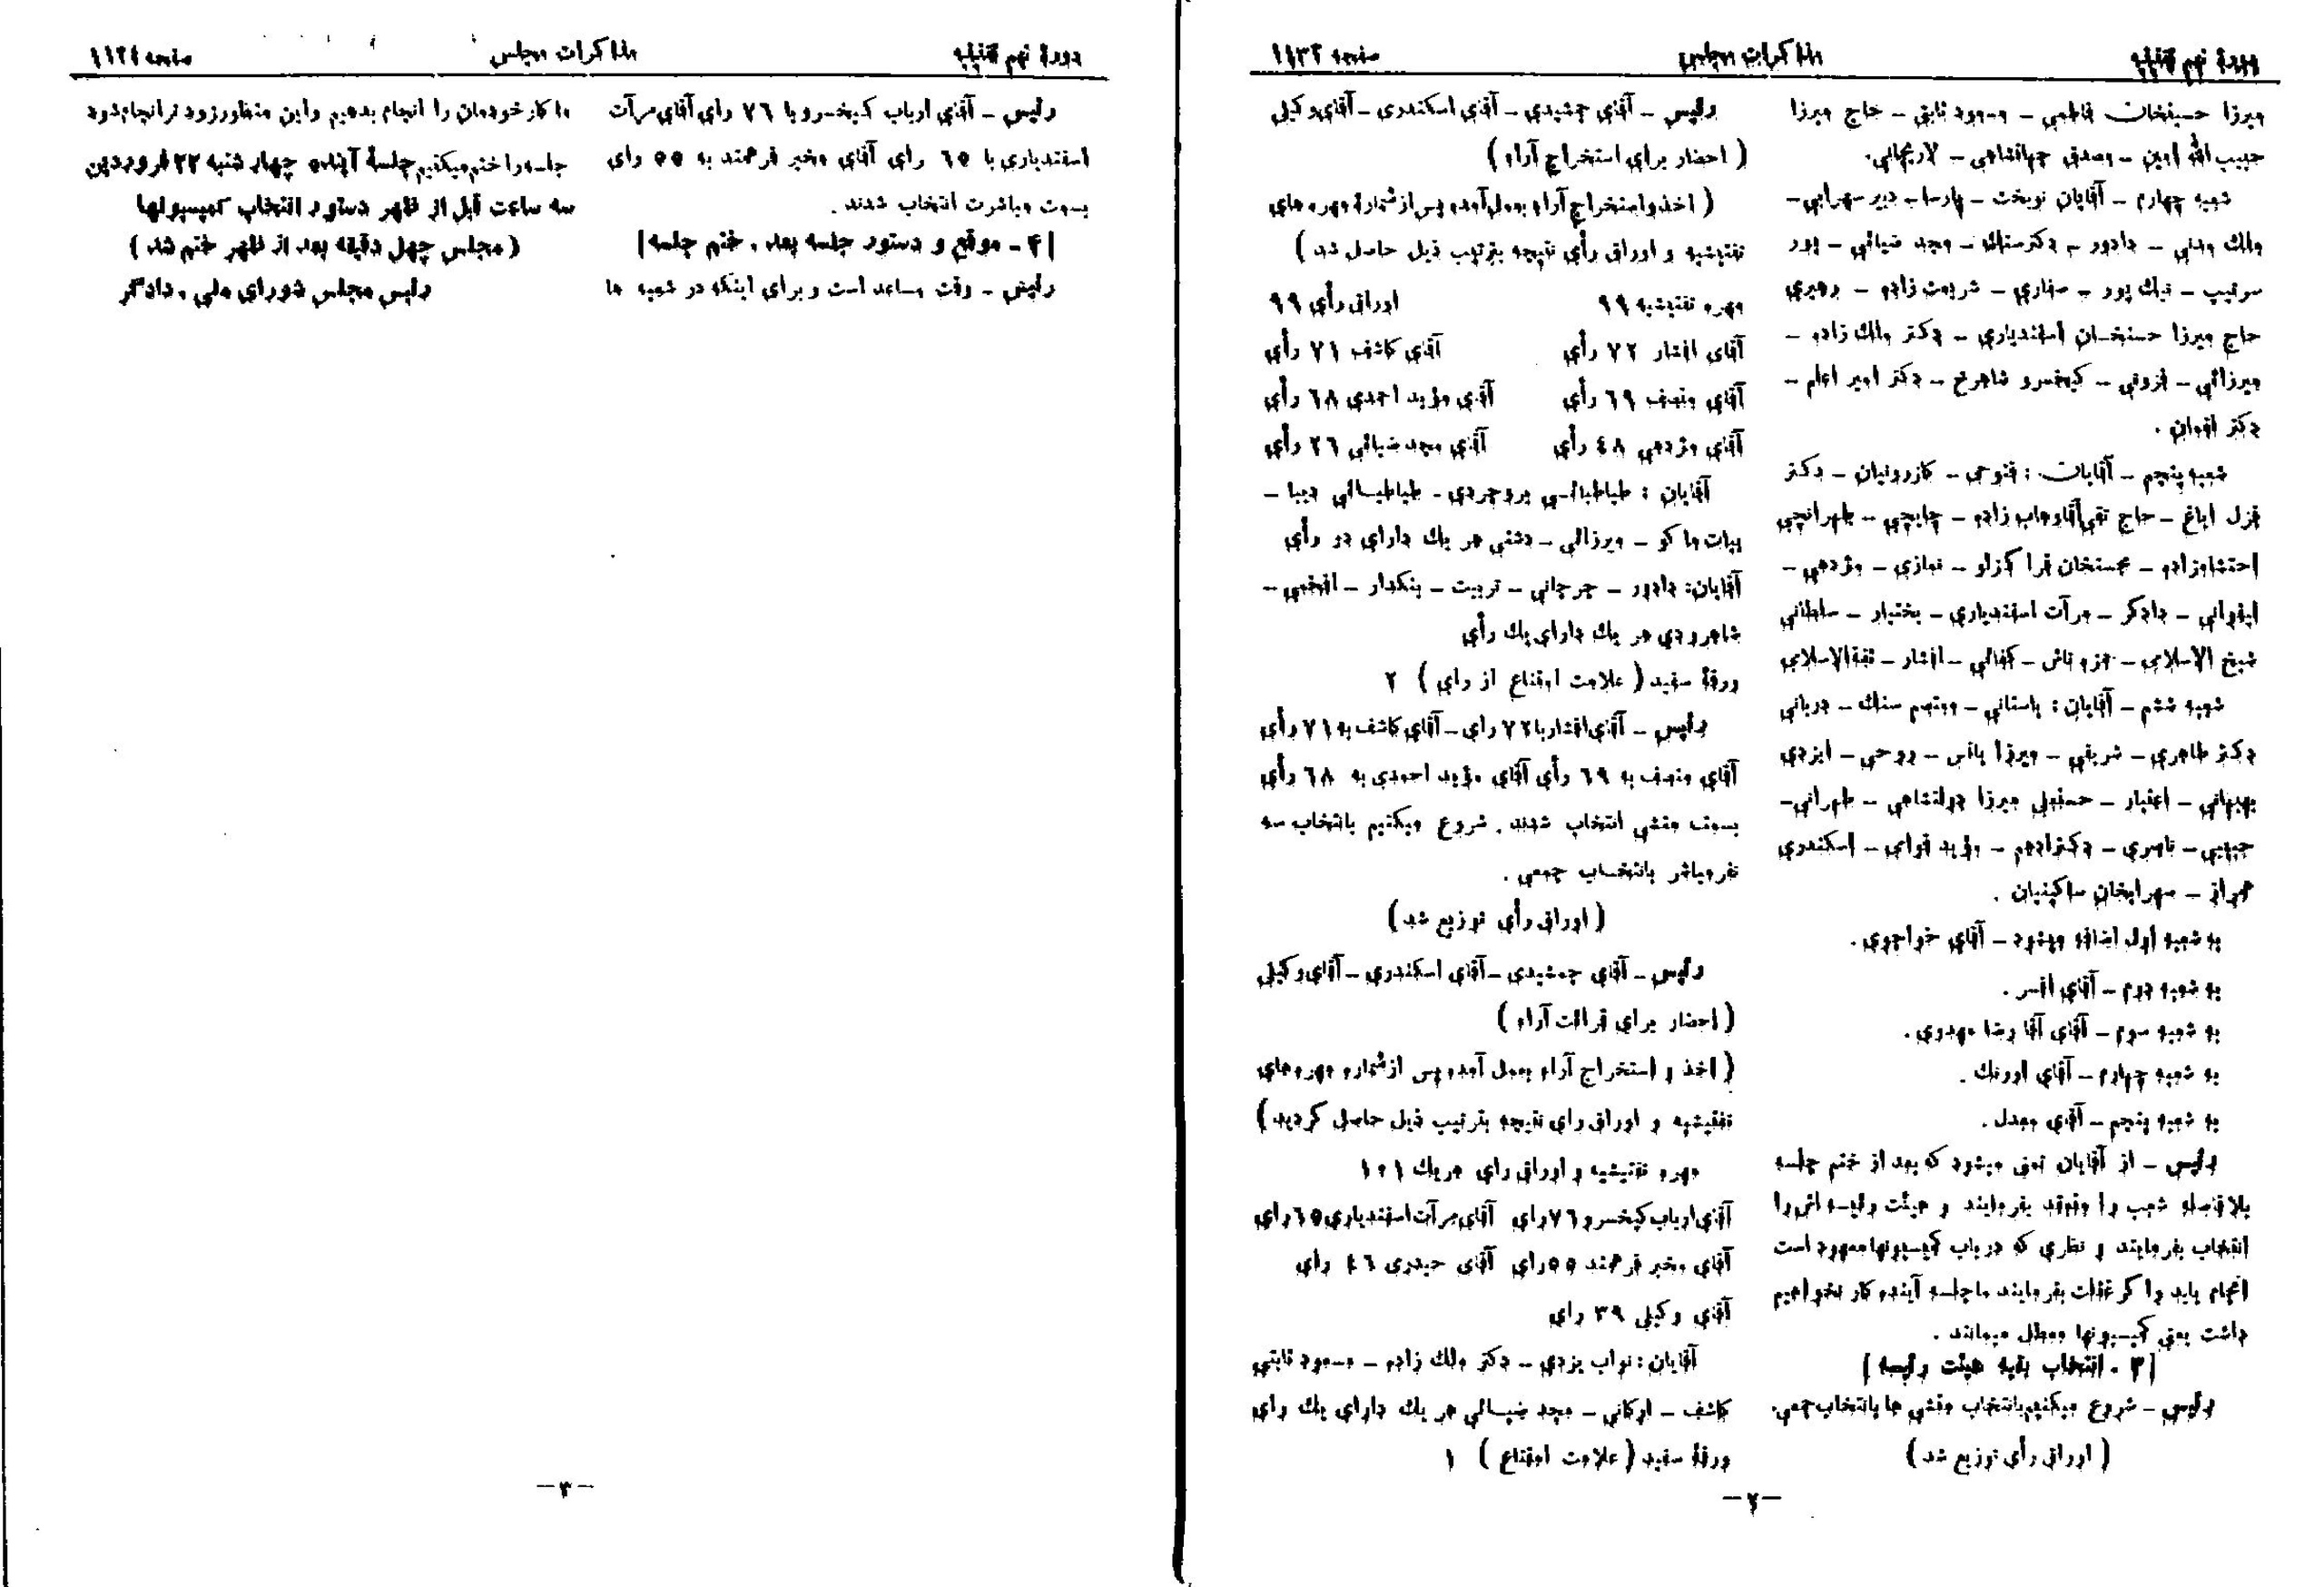 دورهٔ نهم تقنینیه
مذاکرات مجلس
صفحه ۱۱۳۲
میرزا حسینخان فاطمی ـ مسعود ثابتی ـ حاج میرزا
حبیب‌الله امین ـ مصدق جهانشاهی ـ لاریجانی.
شعبه چهارم ـ آقایان نوبخت ـ پارسا ـ دبیر سهرابی ـ
ملك مدنی ـ دادور ـ دکتر سنك ـ مجد ضیائی ـ پور
سرتیپ ـ نیك پور ـ صفاری ـ شریعت زاده ـ رهبری
حاج میرزا حسنخان اسفندیاری ـ دکتر ملك زاده ـ
میرزائی ـ فزونی ـ کیخسرو شاهرخ ـ دکتر امیر اعلم ـ
دکتر لقمان .
شعبه پنجم ـ آقایان : فتوحی ـ کازرونیان ـ دکتر
قزل ایاغ ـ حاج تقی آقا وهاب زاده ـ چایچی ـ طهرانچی
احتشام‌زاده ـ محسنخان قراگزلو ـ نمازی ـ مؤدهی ـ
لیقوانی ـ دادگر ـ مرآت اسفندیاری ـ بختیار ـ سلطانی
شیخ الاسلامی ـ حمزه تاش ـ کفائی ـ افشار ـ ثقة‌الاسلامی
شعبه ششم ـ آقایان : باستانی ـ معتصم سنك ـ دربانی
دکتر طاهری ـ شریفی ـ میرزا یانس ـ روحی ـ ایزدی
بهبهانی ـ اعتبار ـ حسنقلی میرزا دولتشاهی ـ طهرانی ـ
حبیبی ـ ناصری ـ دکتر ادهم ـ مؤید قوامی ـ اسکندری
همراز ـ سهرابخان ساکینیان .
به شعبه اول اضافه میشود ـ آقای خواجوی.
به شعبه دوم ـ آقای افسر .
به شعبه سوم ـ آقای آقا رضا مهدوی.
به شعبه چهارم ـ آقای اورنك .
به شعبه پنجم ـ آقای معدل .
رئیس ـ از آقایان تمنی میشود که بعد از ختم جلسه
بلافاصله شعب را منعقد بفرمایند و هیئت رئیسه اش را
انتخاب بفرمایند و نظری که در باب کمیسیونها معهود است
انجام یابد و اگر غفلت بفرمایند ما جلسه آینده کار نخواهیم
داشت یعنی کمیسیونها معطل میمانند .
[۳ ـ انتخاب بقیه هیئت رئیسه]
رئیس ـ شروع میکنیم بانتخاب منشی ها بانتخاب جمعی.
(اوراق رأی توزیع شد)
رئیس ـ آقای جمشیدی ـ آقای اسکندری ـ آقای وکیلی
(احضار برای استخراج آراء)
(اخذ و استخراج آراء بعمل آمده پس از شمارهٔ مهره های
تفتیشیه و اوراق رأی نتیجه بترتیب ذیل حاصل شد)
مهره تفتیشیه ۹۹ اوراق رأی ۹۹
آقای افشار ۷۲ رأی آقای کاشف ۷۱ رأی
آقای منصف ۶۹ رأی آقای مؤید احمدی ۶۸ رأی
آقای مؤدهی ۴۸ رأی آقای مجد ضیائی ۲۶ رأی
آقایان : طباطبائی بروجردی ـ طباطبائی دیبا ـ
بیات ماکو ـ میرزائی ـ دشتی هر یك دارای دو رأی
آقایان: دادور ـ جرجانی ـ تربیت ـ بنکدار ـ افخمی ـ
شاهرودی هر یك دارای یك رأی
ورقهٔ سفید (علامت امتناع از رای) ۲
رئیس ـ آقای افشار با ۷۲ رای ـ آقای کاشف به ۷۱ رأی
آقای منصف به ۶۹ رأی آقای مؤید احمدی به ۶۸ رأی
بسمت منشی انتخاب شدند . شروع میکنیم بانتخاب سه
نفر مباشر بانتخاب جمعی .
(اوراق رأی توزیع شد)
رئیس ـ آقای جمشیدی ـ آقای اسکندری ـ آقای وکیلی
(احضار برای قرائت آراء)
(اخذ و استخراج آراء بعمل آمده پس از شماره مهره های
تفتیشیه و اوراق رای نتیجه بترتیب ذیل حاصل گردید)
مهره تفتیشیه و اوراق رای هر یك ۱۰۱
آقای ارباب کیخسرو ۷۶ رای آقای مرآت اسفندیاری ۶۵ رای
آقای مخبر فرهمند ۵۵ رای آقای حیدری ۴۶ رای
آقای وکیلی ۳۹ رای
آقایان : نواب یزدی ـ دکتر ملك زاده ـ مسعود ثابتی
کاشف ـ اورکانی ـ مجد ضیائی هر یك دارای یك رای
ورقهٔ سفید (علامت امتناع) ۱
ـ۲ـ
دورهٔ نهم تقنینیه
مذاکرات مجلس
صفحه ۱۱۳۴
رئیس ـ آقای ارباب کیخسرو با ۷۶ رای آقای مرآت
اسفندیاری با ۶۵ رای آقای مخبر فرهمند به ۵۵ رای
بسمت مباشرت انتخاب شدند .
[۴ ـ موقع و دستور جلسه بعد ، ختم جلسه]
رئیس ـ وقت مساعد است و برای اینکه در شعبه ها
ما کار خودمان را انجام بدهیم و این منظور زودتر انجام شود
جلسه را ختم میکنیم جلسهٔ آینده چهار شنبه ۲۲ فروردین
سه ساعت قبل از ظهر دستور انتخاب کمیسیونها
(مجلس چهل دقیقه بعد از ظهر ختم شد)
رئیس مجلس شورای ملی ـ دادگر
ـ۳ـ